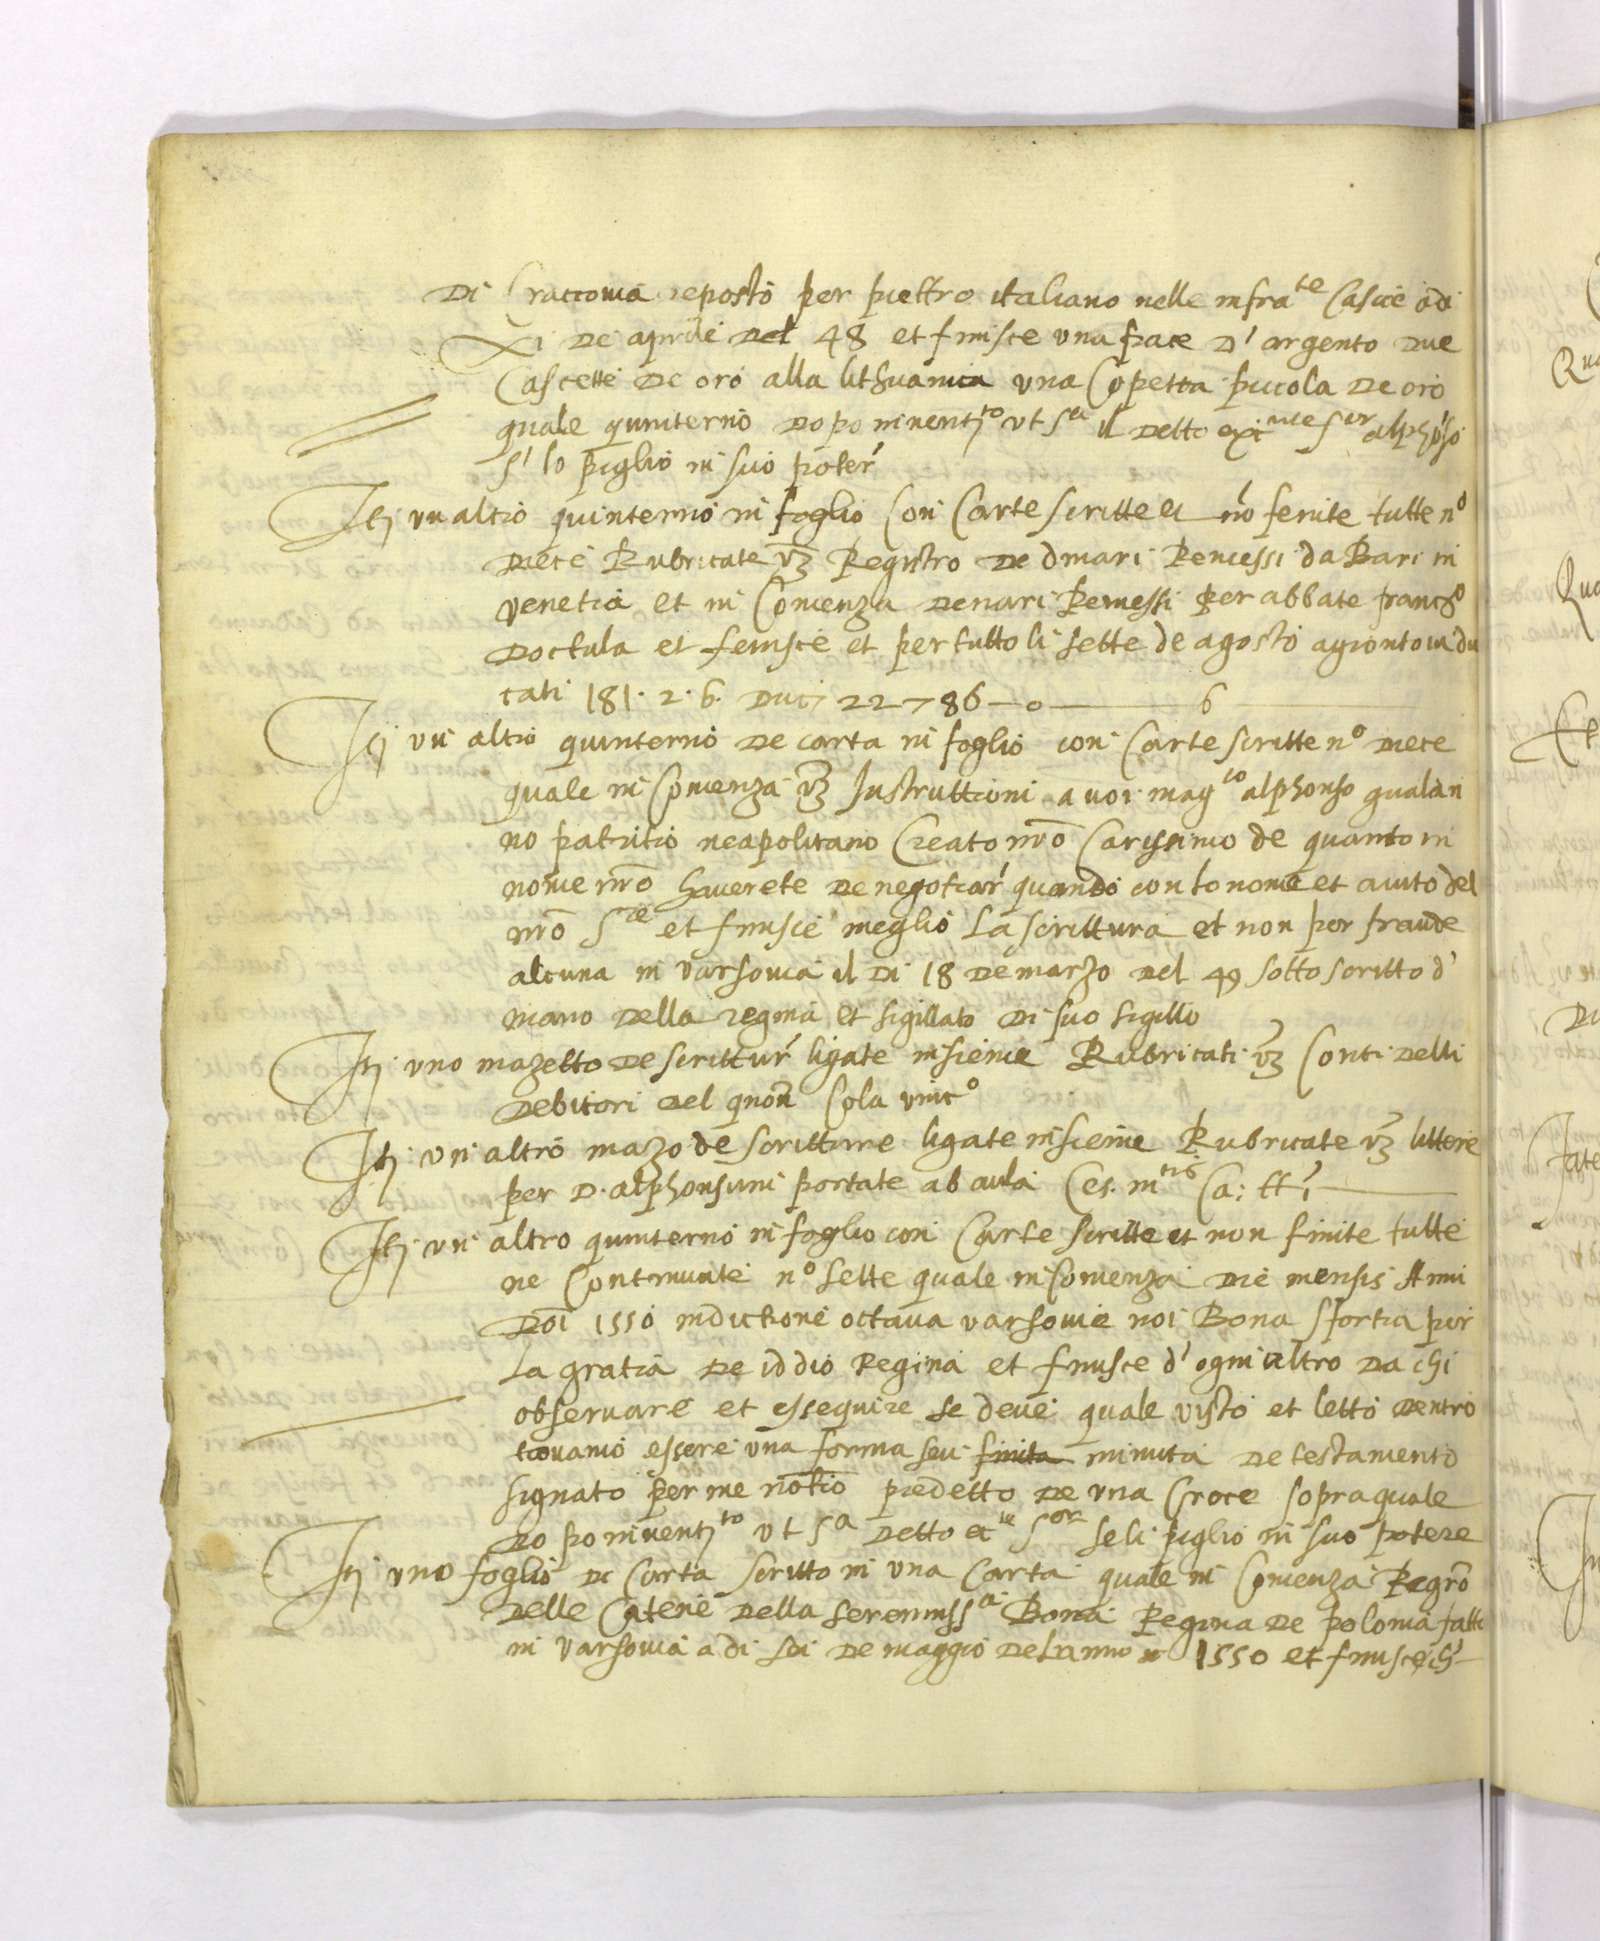 Di Craccovia reposto per piettro italiano nelle infra^te Casice adi
Xi De aprile Del 48 et finisce una pace D' argento Due
Cascette De oro alla lithuanica una Copetta piccola De oro
quale quinterno Dopo inventj^to ut S^a il Detto ex^nte S^or alphōso
S' lo piglio in suo poter'
Itj un altro quinterno in foglio Con Carte scritte et nō ferite tutte n^o
Diece Rubricate vz Registro De dinari Remessi da Bari in
venetia et in Comenza Denari Remessi per abbate franc^o
Doctula et fenisce et per tutto li sette de agosto agionto vi du
cati 181. 2. 6. Duc 22786 — 0 — 6
Itj un altro quinterno De carta in foglio con Carte scritte n^o Diece
quale in Comenza vz Instruttioni a voi mag^co alphonso gualan
no patritio neapolitano Creato nrō Carissimo de quanto in
nome nrō haverete De negotiar' quando con lo nome et aiuto del
nrō S^re et finisce meglio La scrittura et non per fraude
alcuna in Varsovia il Di 18 De marzo Del 49 sotto scritto d'
mano Della regina et sigillato Di suo sigillo
Itj uno mazetto De scrittur' ligate insieme Rubricati vz Conti Delli
Debitori Del quōn Cola vinc^o
Itj un altro mazo de scritture ligate insieme Rubricate vz littere
per D. alphonsum portate ab aula Ces. m^tis Ca:
Itj un altro quinterno in foglio con Carte scritte et non finite tutte
ne Continente n^o sette quale in Comenza Die mensis Anni
Doī 1550 indictione octava varsovie noi Bona Sfortia per
La gratia De iddio Regina et finisce d' ogni altro Da chi
observare et essequire se deve quale visto et letto Dentro
trovamo essere una forma seu finita minuta De testamento
signato per me notio predetto De una Croce sopra quale
Do po inventj^to ut S^a Detto ec^te S^or se li piglio in suo potere
Itj uno foglio De Carta scritto in una Carta quale in Comenza Regrō
Delle Catene Della serenniss^a Bona Regina De polonia fatto
in varsovia a di sei De maggio De Lanno 1550 et finisce ch'